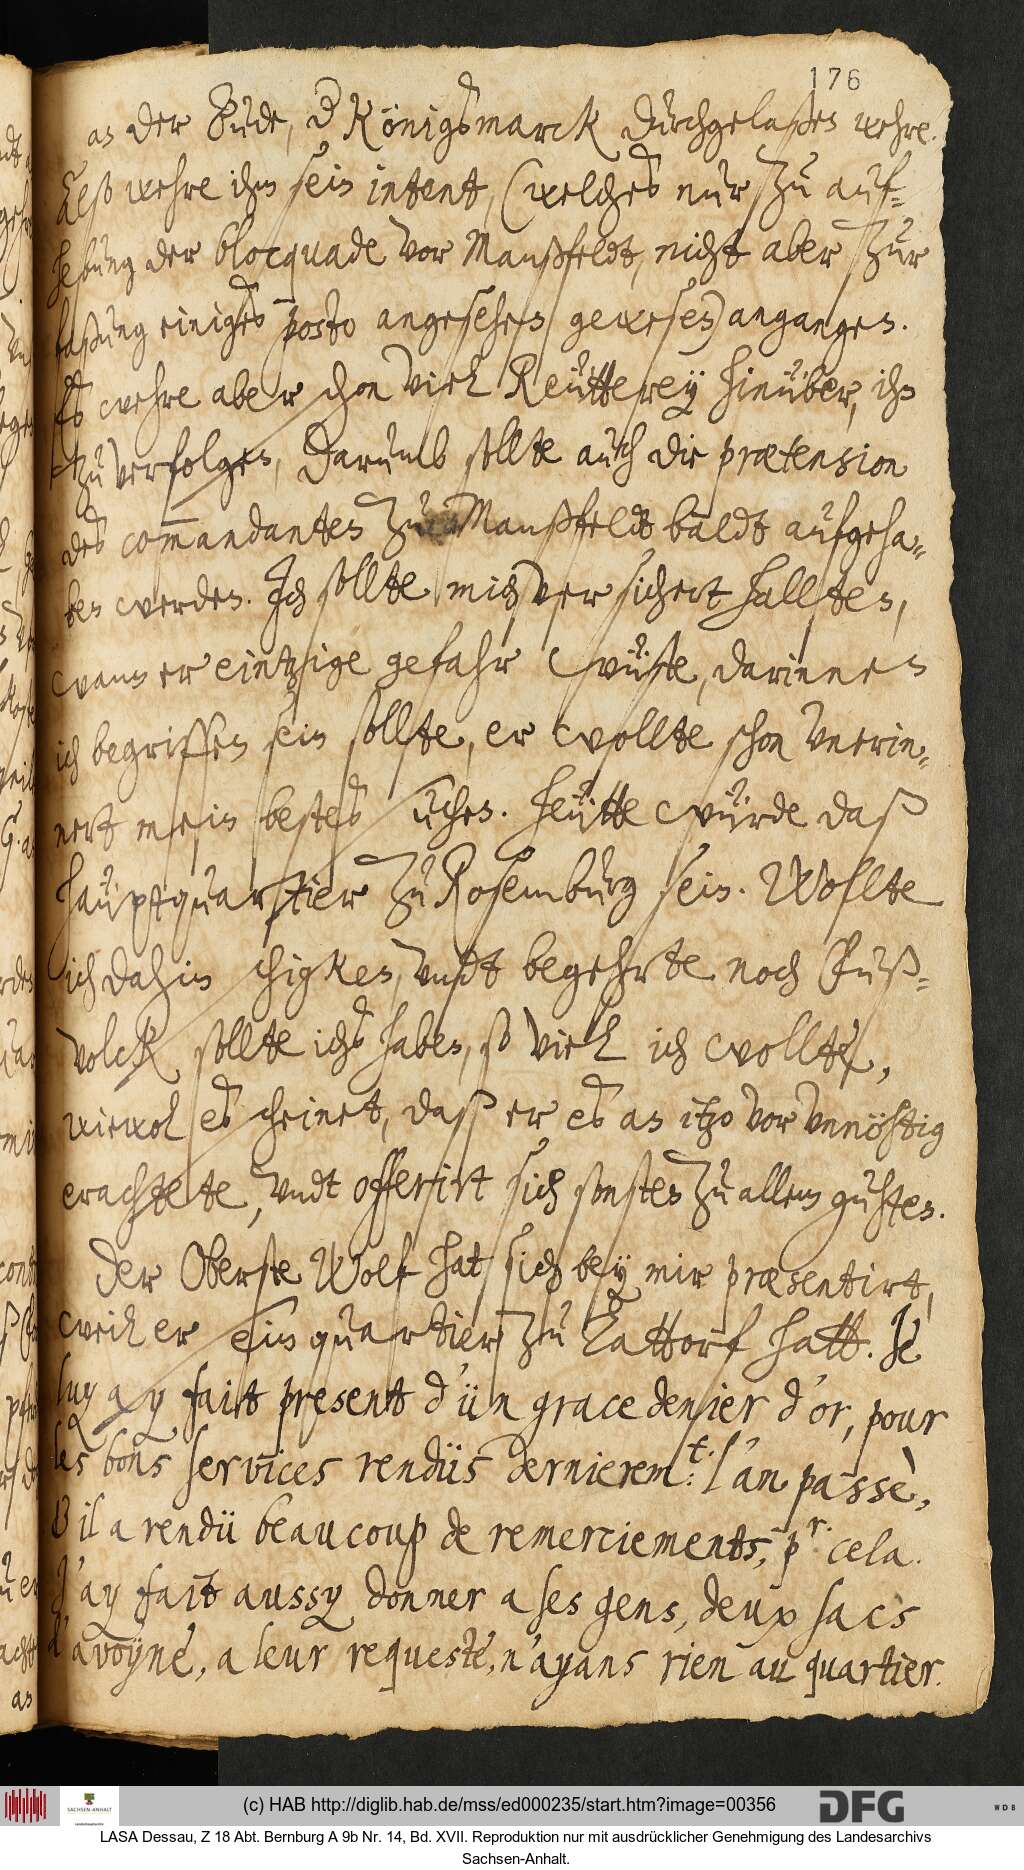 176
an der Bude, d Königsmarck durchgelaßen wehre.
Als wehre ihm sein intent, (welches nur zu auf-
hebung der blocquade vor Manßfeldt, nicht aber zur
faßung einiges posto angesehen gewesen) angangen.
Es wehre aber schon viel Reütterey hinüber, ihn
zu verfolgen, Darumb sollte auch die prætension
des commandanten zu Manßfeldt baldt aufgeha-
ben werden. Jch sollte mich versichert hallten,
wann er eintzige gefahr wüste, darinnen
ich begriffen sein sollte, er wollte schon vnerin-
nert mein bestes suchen. Heütte würde daß
haüptquartier zu Rosemburg sein. Wollte
ich dahin schigken, vndt begehrte noch Fuß-
volck sollte ichs haben, so viel ich wollte,
wiewol es scheinet, daß er es an itzo vor vnnöhtig
erachtete, vndt offerirt sich sonsten zu allem guhten.
Der Oberste Wolf hat sich bey mir præsentirt,
weil er sein quartier zu Lattorf hatt. Je
luy ay fait present d'ün grace denier d'or, pour
les bons services rendüs dernierem.t: l'an passè,
& il a rendü beaucoup de remerciements, p.r cela.
J'ay fait aussy donner a ses gens, deux sacs
d'avoyne, a leur requeste, n'ayans rien au quartier.
(c) HAB http://diglib.hab.de/mss/ed000235/start.htm?image=00356
SACHSEN-ANHALT
DFG
WDB
LASA Dessau, Z 18 Abt. Bernburg A 9b Nr. 14, Bd. XVII. Reproduktion nur mit ausdrücklicher Genehmigung des Landesarchivs
Sachsen-Anhalt.